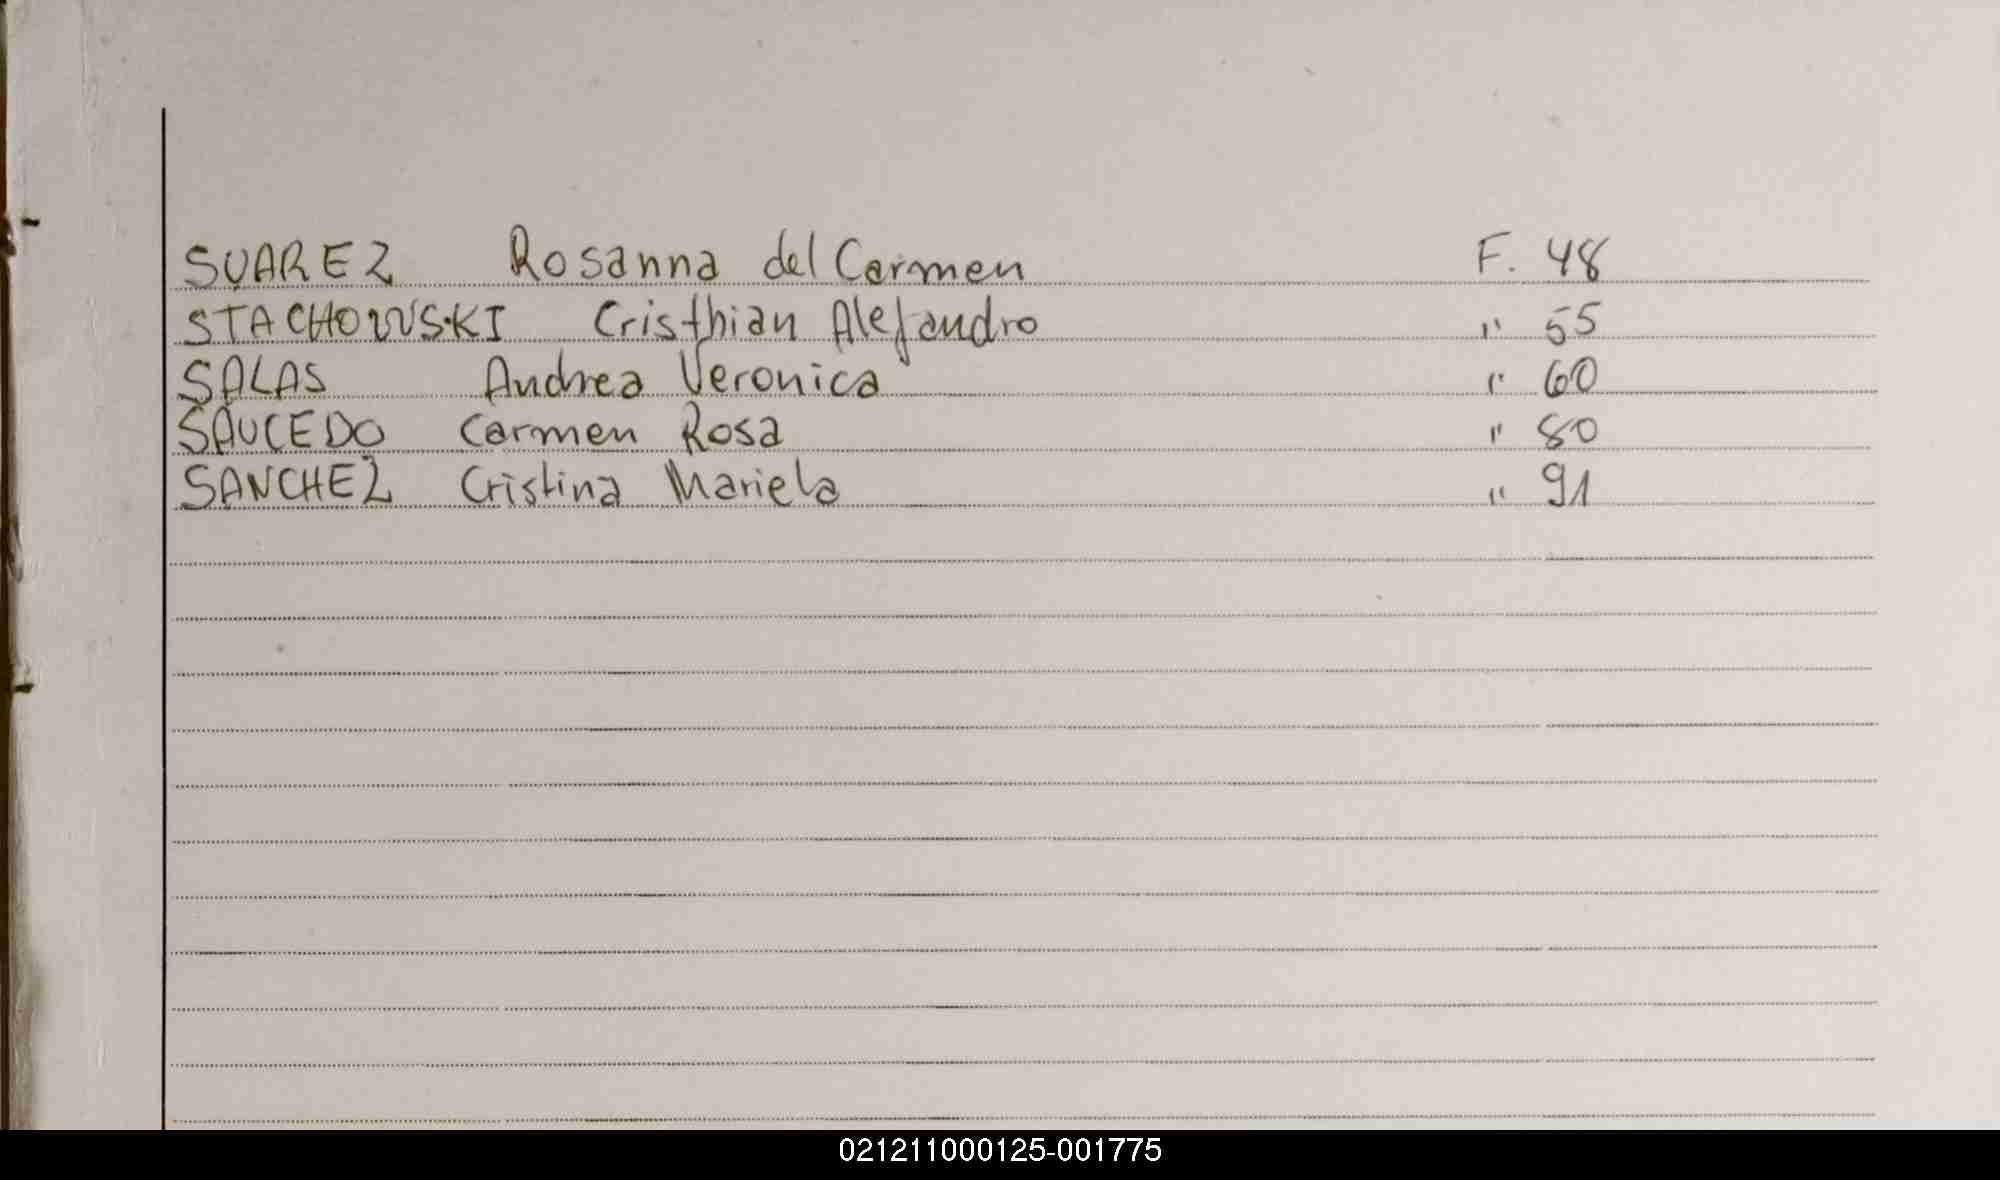 SUAREZ Rosanna del Carmen F. 48
STACHOWSKI Cristhian Alejandro " 55
SALAS Andrea Veronica " 60
SAUCEDO Carmen Rosa " 80
SANCHEZ Cristina Mariela " 91
021211000125-001775